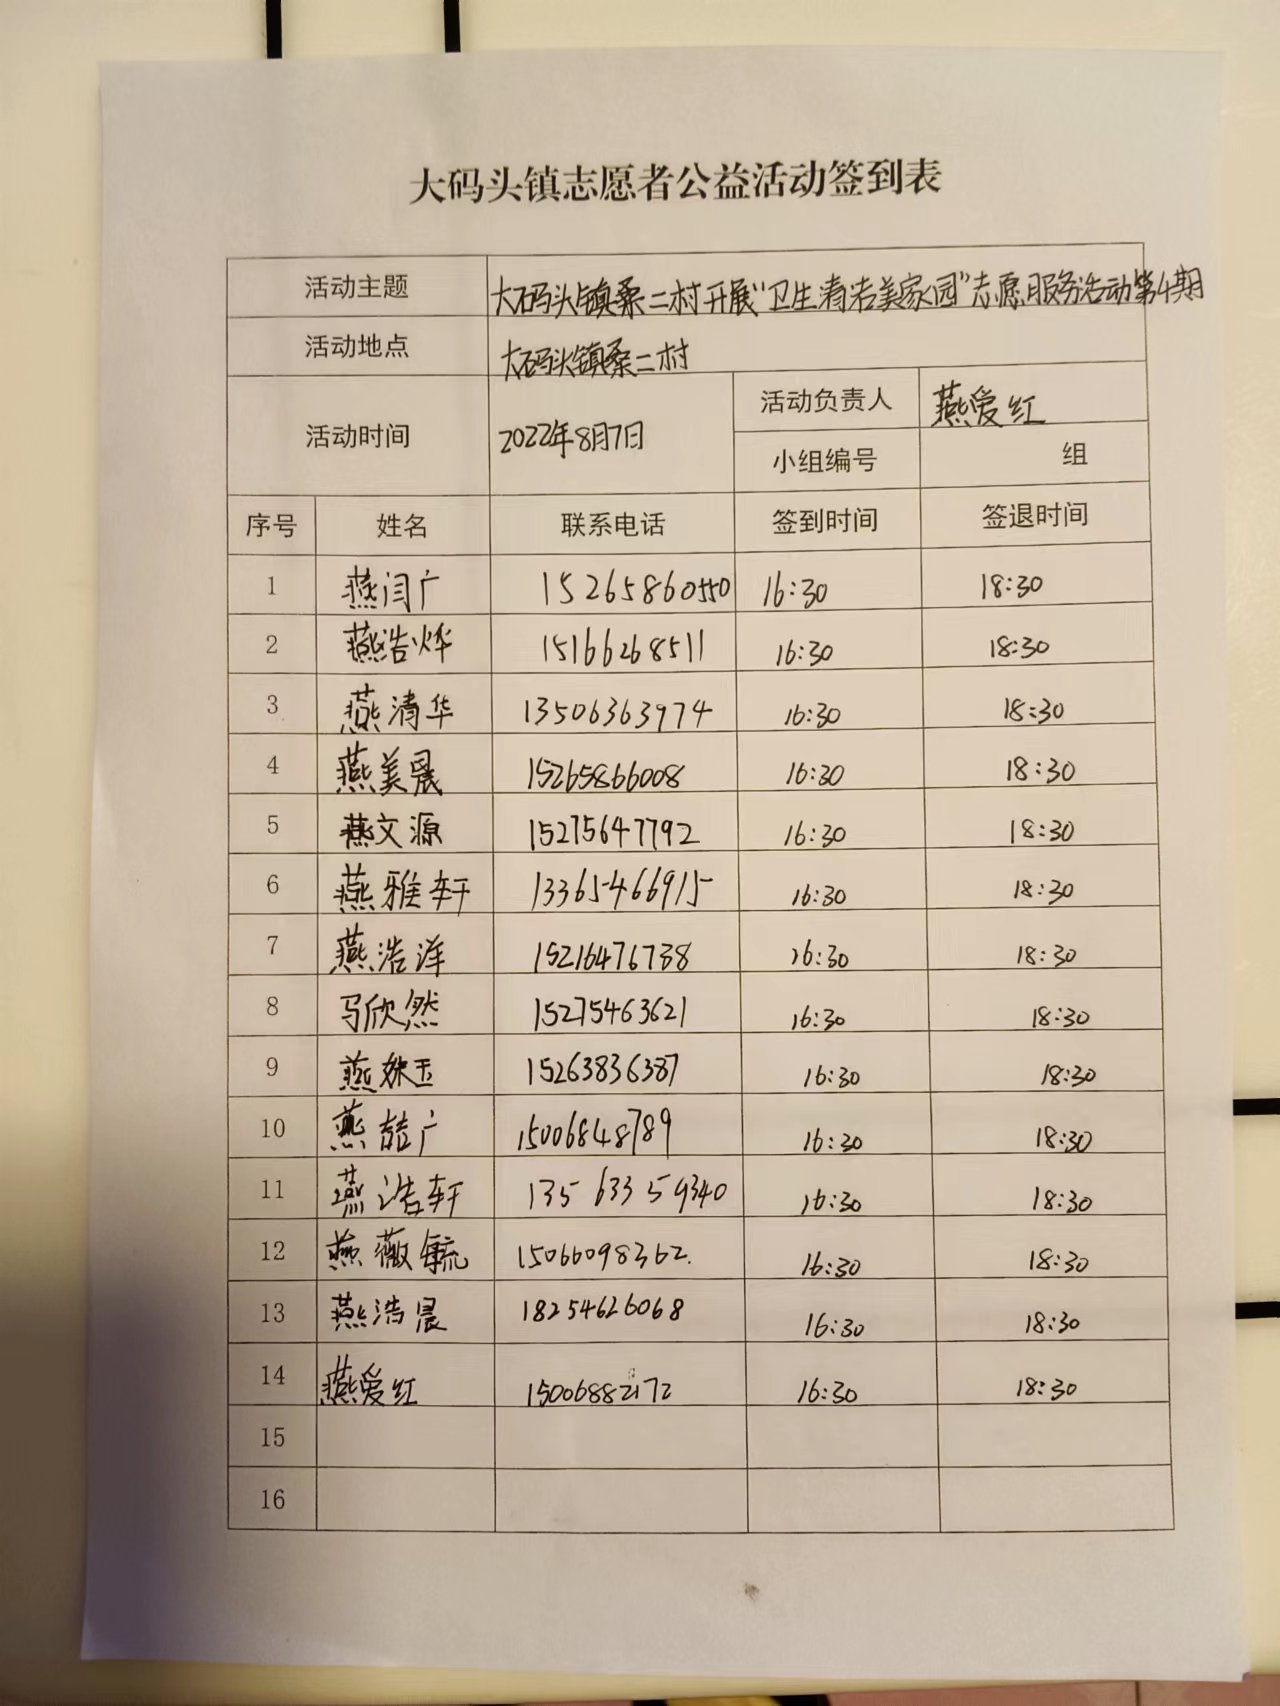 大码头镇志愿者公益活动签到表
活动主题 大码头镇桑二村开展“卫生清洁美家园”志愿服务活动第4期
活动地点 大码头镇桑二村
活动时间 2022年8月7日 活动负责人 燕爱红
小组编号 组
序号 姓名 联系电话 签到时间 签退时间
1 燕闫广 15265860550 16:30 18:30
2 燕浩烨 15166268511 16:30 18:30
3 燕清华 13506363974 16:30 18:30
4 燕美晟 15265866008 16:30 18:30
5 燕文源 15275647792 16:30 18:30
6 燕雅轩 13365466915 16:30 18:30
7 燕浩洋 15216476738 16:30 18:30
8 马欣然 15275463621 16:30 18:30
9 燕姝玉 15263836387 16:30 18:30
10 燕喆广 15006848789 16:30 18:30
11 燕浩轩 13563359340 16:30 18:30
12 燕薇毓 15066098362. 16:30 18:30
13 燕浩晨 18254626068 16:30 18:30
14 燕爱红 15006882172 16:30 18:30
15
16